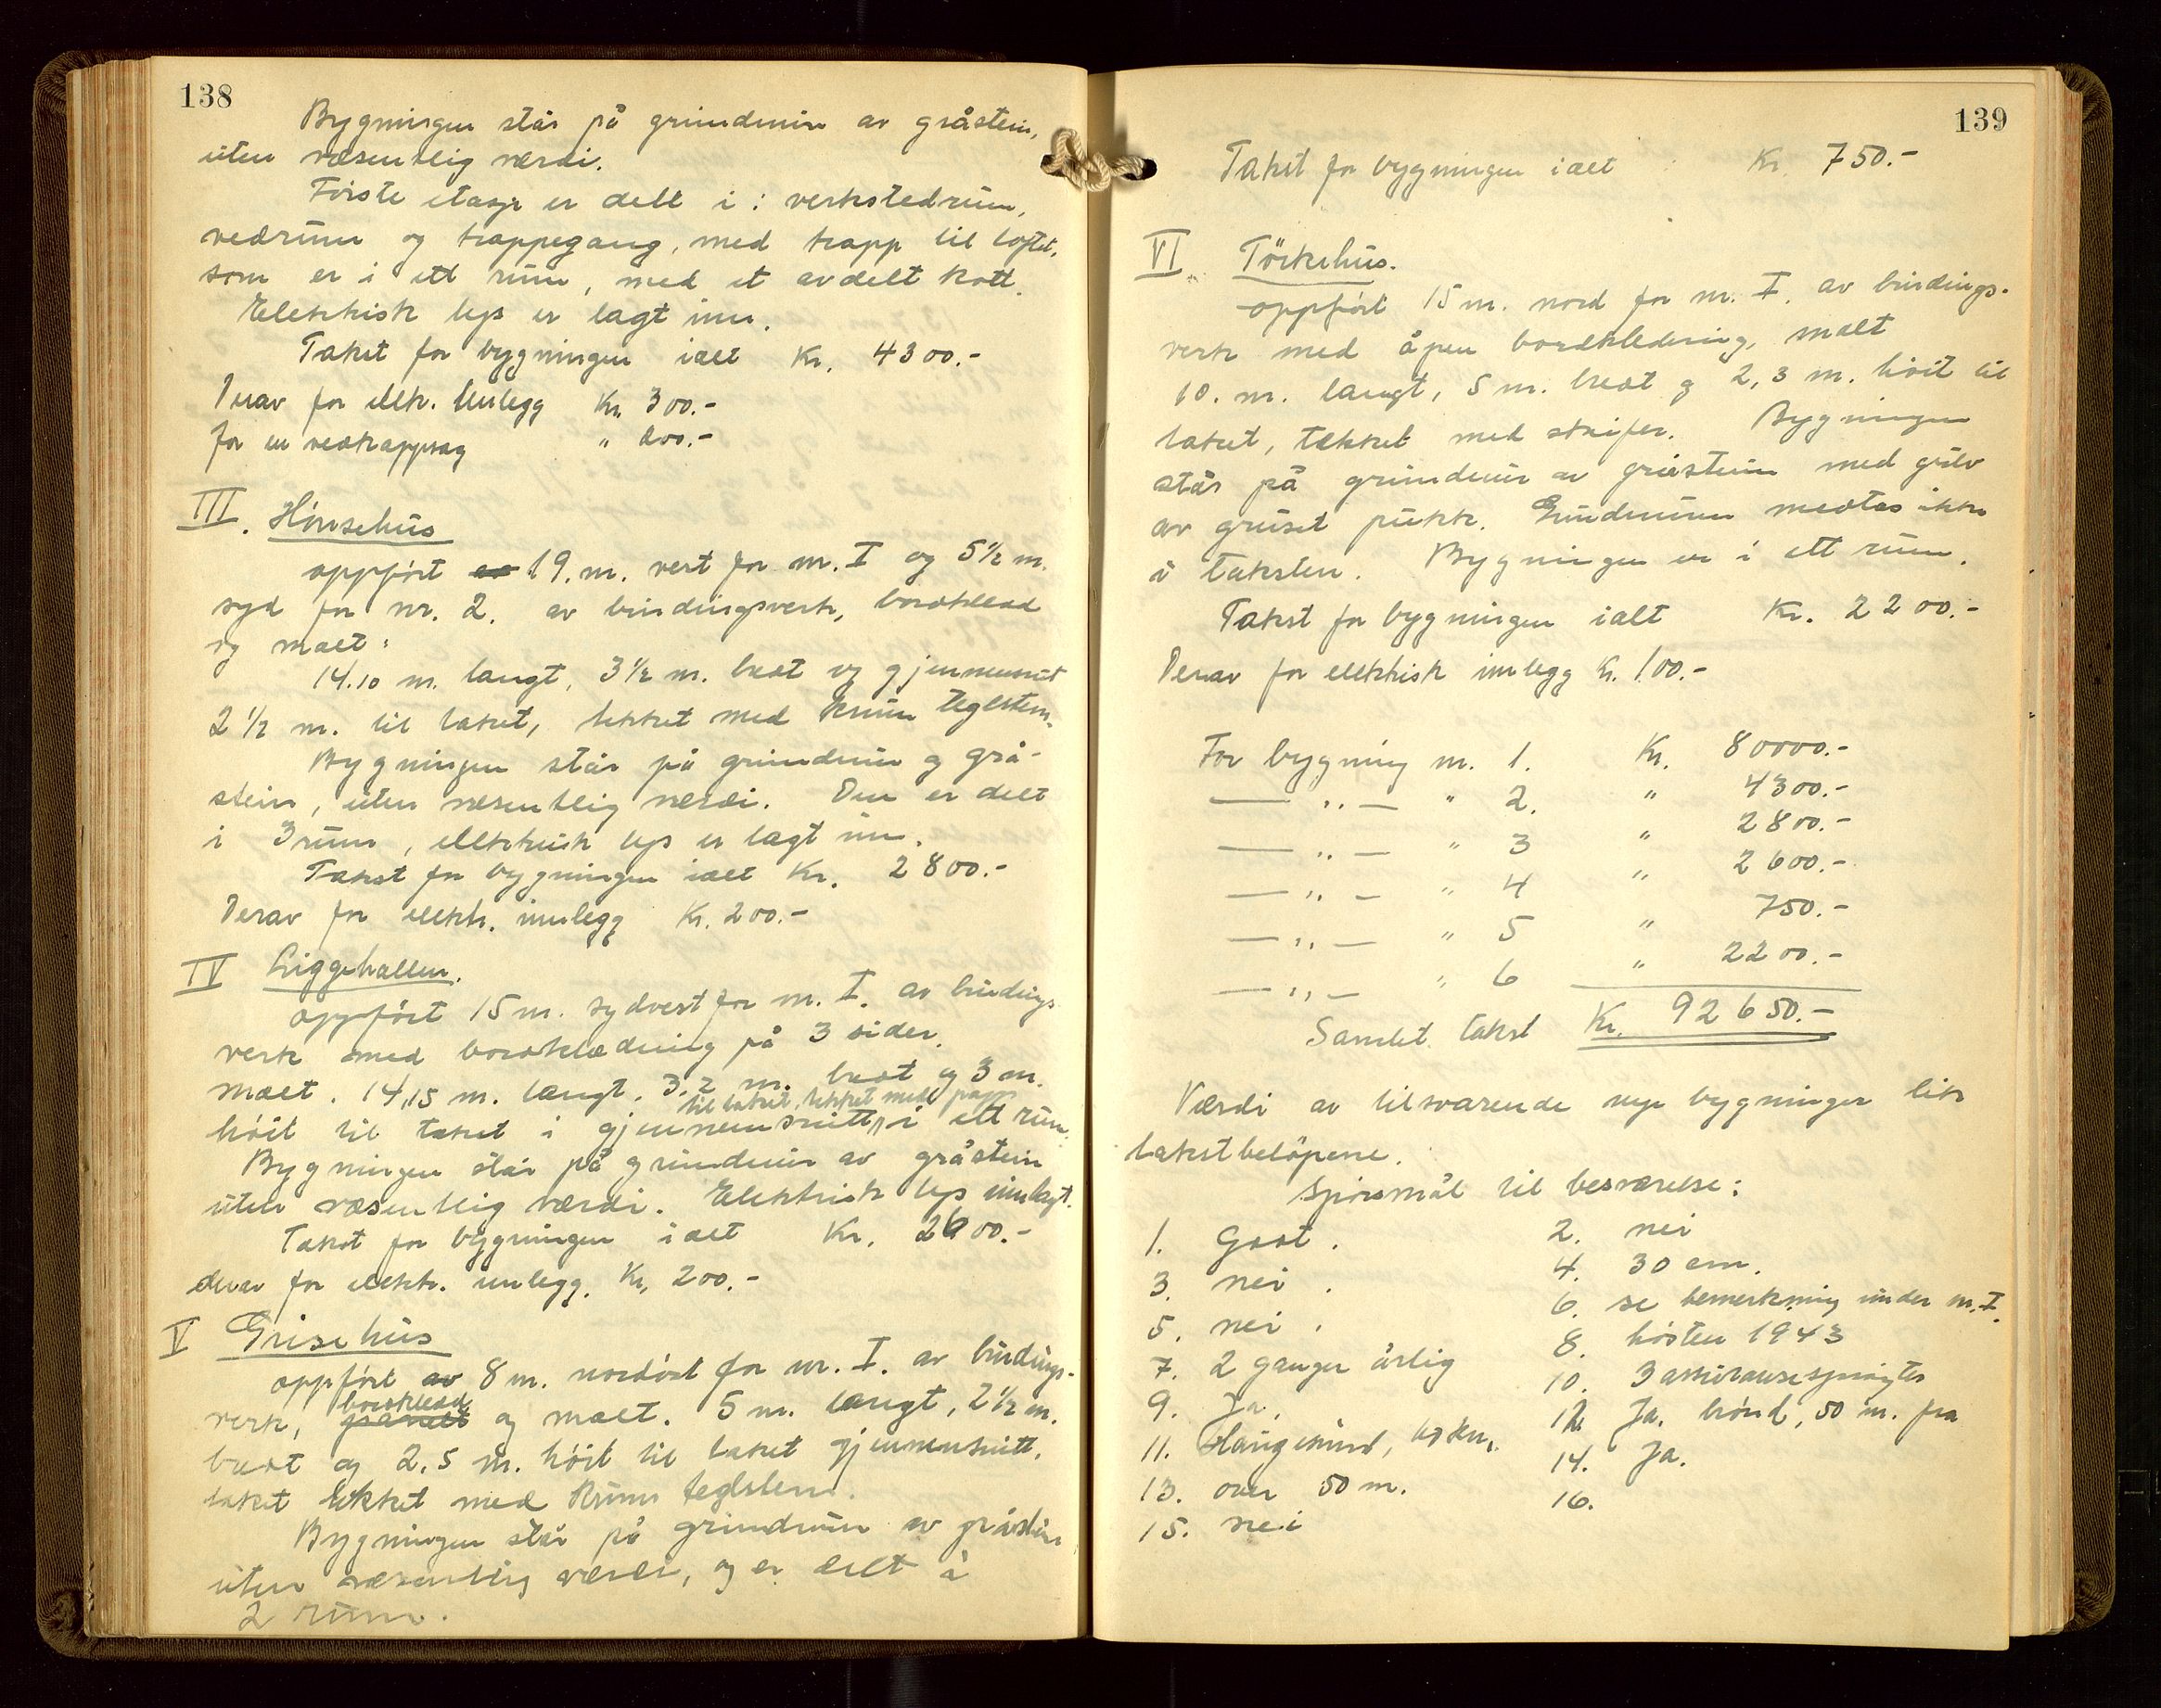 138
Bygningen står på grundmur av gråstein,
uten væsentlig værdi.
Förste etasje er delt i: verkstedrum,
vedrum og trappegang, med trapp til loftet,
som er i ett rum, med et avdelt kott.
Elektrisk lys er lagt inn.
Takst for bygningen ialt Kr. 4300.-
Derav for elek. innlegg Kr. 300.-
for en vedkappsag " 200.-
III. Hönsehus
oppfört av 19. m. vest for nr. I og 5 1/2 m.
syd for nr. 2. av bindingsverk, bordkledd
og malt:
14.10 m. langt, 3 1/2 m. bredt og gjennemsnit
2 1/2 m. til taket, tekket med krum teglsten.
Bygningen står på grundmur og grå-
stein, uten væsentlig værdi. Den er delt
i 3 rum, elektrisk lys er lagt inn.
Takst for bygningen ialt Kr. 2800.-
Derav for elektr. innlegg Kr. 200.-
IV Liggehallen.
oppfört 15 m. sydvest for nr. I. av bindings
verk med bordklædning på 3 sider.
malt. 14,15 m. langt. 3,2 m. bredt og 3 m.
til taket, tekket med papp
höit til taket i gjennemsnitt, i ett rum.
Bygningen står på grundmur av gråstein
uten væsentlig værdi. Elektrisk lys innlagt.
Takst for bygningen ialt Kr. 2600.-
derav for elektr. innlegg. Kr. 200.-
V Grisehus
oppfört av 8 m. nordöst for nr. I. av bindings-
bordkledd
verk, panelt og malt. 5 m. langt, 2 1/2 m.
bredt og 2.5 m. höit til taket gjennemsnitt.
taket tekket med krum teglsten.
Bygningen står på grundmur av gråstein
uten væsentlig værdi, og er delt i
2 rum.
139
Takst for bygningen ialt Kr. 750.-
VI. Törkehus.
oppfört 15 m. nord for nr. I. av bindings-
verk med åpen bordkledning, malt
10. m. langt, 5 m. bredt og 2,3 m. höit til
taket, tekket med skifer. Bygningen
står på grundmur av gråstein med gulv
av gruset pukk. Grundmuren medtas ikke
i taksten. Bygningen er i ett rum.
Takst for bygningen ialt Kr. 2200.-
Derav for elektrisk innlegg Kr. 100.-
For bygning nr. 1. Kr. 80000.-
— ,, — " 2. " 4300.-
— ,, — " 3 " 2800.-
— ,, — " 4 " 2600.-
— ,, — " 5 " 750.-
— ,, — " 6 " 2200.-
Samlet takst Kr. 92650.-
Værdi av tilsvarende nye bygninger lik
takstbelöpene.
Spörsmål til besvarelse:
1. Godt. 2. nei
3. nei. 4. 30 cm.
5. nei. 6. se bemerkning under nr. I.
7. 2 ganger årlig 8. hösten 1943
9. Ja. 10. 3 assuransespröyter
11. Haugesund, 12. Ja. brönd, 50 m. fra
13. over 50 m. 14. Ja.
15. nei 16.